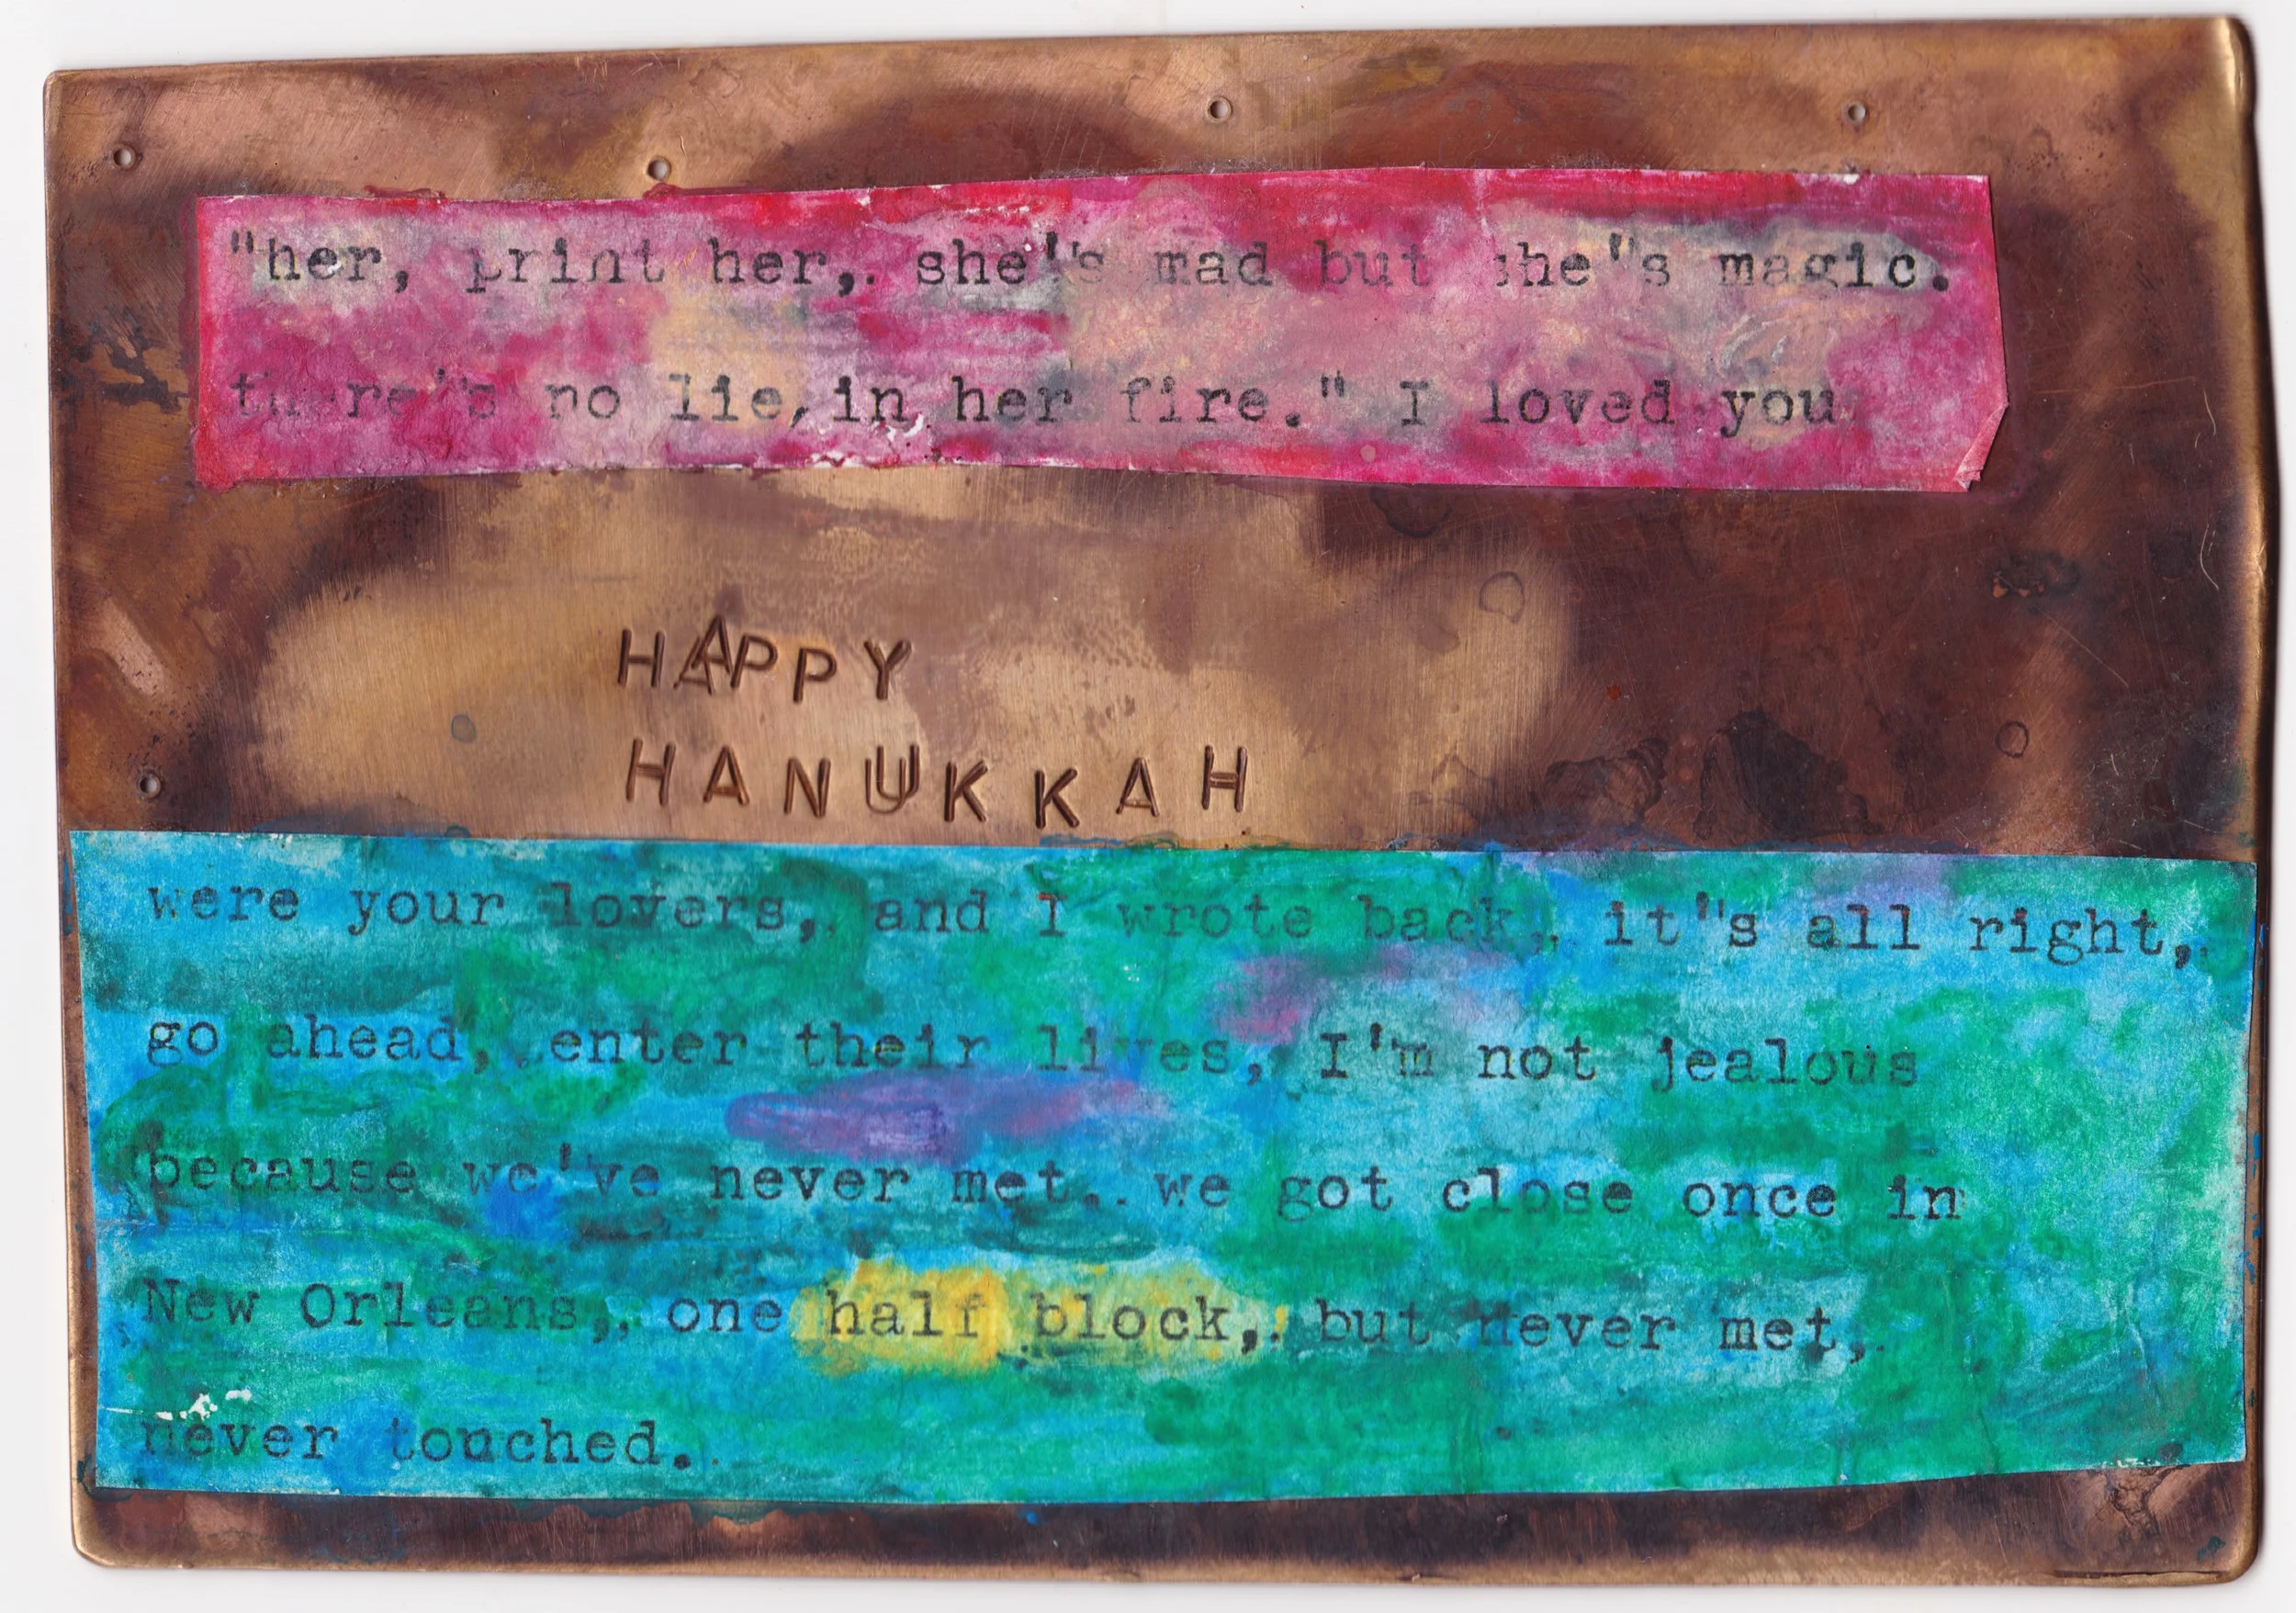 "her, print her,. she''s mad but she"s magic.
there''s no lie, in her fire." I loved you
HAPPY
HANUKKAH
were your lovers,. and I wrote back,. it''s all right,.
go ahead, enter their lives, I'm not jealous
because we've never met.. we got close once in
New Orleans,. one half block,. but never met,.
never touched..